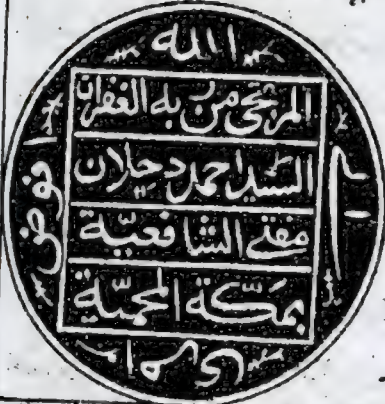 افوض
امري
الى
الله
المرتجي من ربه الغفران
السيد احمد دحلان
مفتي الشافعية
بمكة المحمية